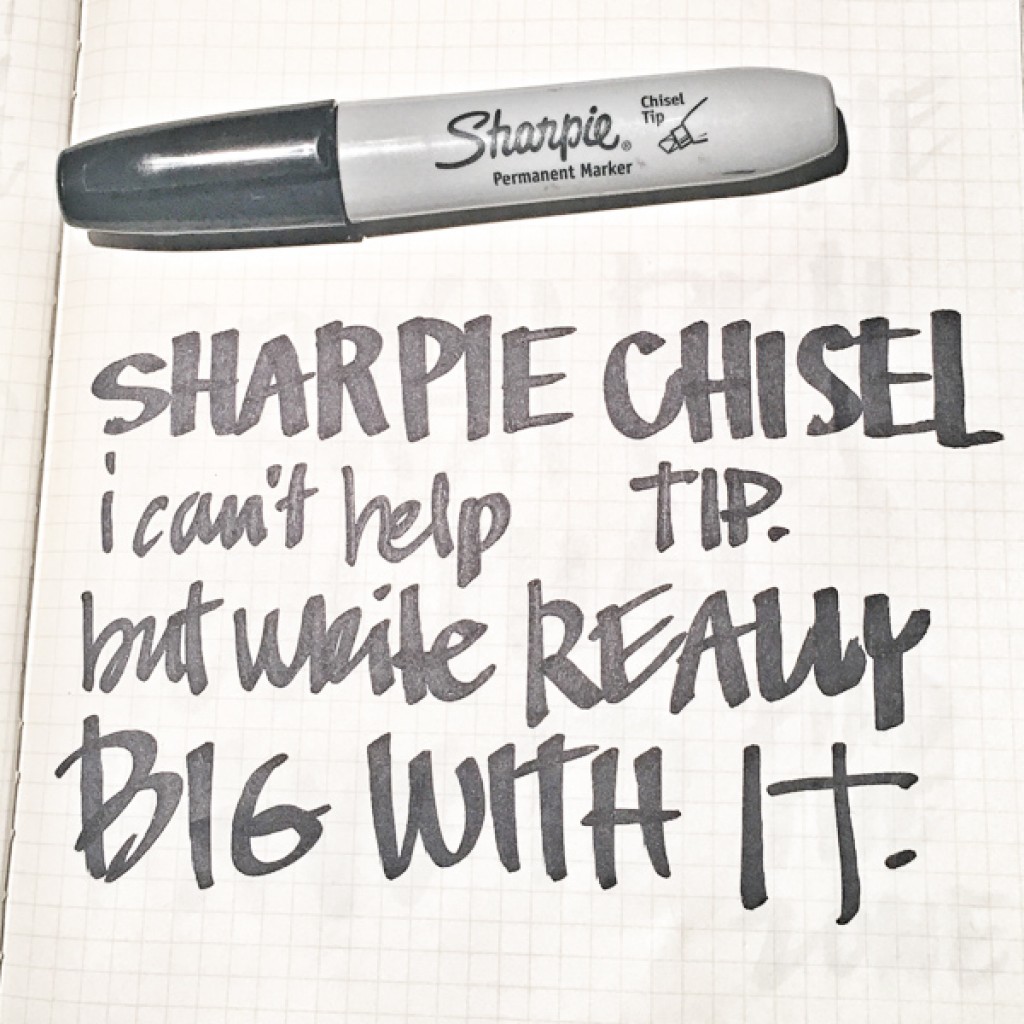 Sharpie® Chisel
Tip
Permanent Marker
SHARPIE CHISEL
TIP.
i can't help
but write REALLY
BIG WITH IT.